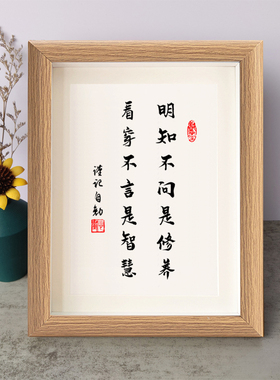 明知不问是修养
看穿不言是智慧
谨记自勉